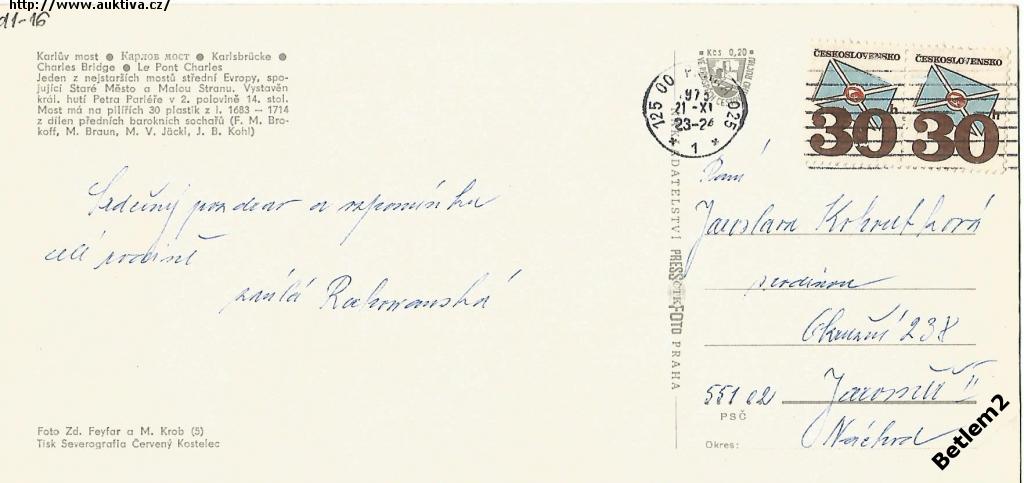 http://www.auktiva.cz/
d1-16
Karlův most ● Карлов мост ● Karlsbrücke ●
Charles Bridge ● Le Pont Charles
Jeden z nejstarších mostů střední Evropy, spo-
jující Staré Město a Malou Stranu. Vystavěn
král. hutí Petra Parléře v 2. polovině 14. stol.
Most má na pilířích 30 plastik z l. 1683 — 1714
z dílen předních barokních sochařů (F. M. Bro-
koff, M. Braun, M. V. Jäckl, J. B. Kohl)
Srdečný pozdrav a vzpomínku
celé rodině
zasílá Rachovanská
Foto Zd. Feyfar a M. Krob (5)
Tisk Severografia Červený Kostelec
Kčs 0,20
125 00
025
1975
21 -XI
23-24
* 1 *
ČESKOSLOVENSKO
30 h
ČESKOSLOVENSKO
30 h
PRESSFOTO PRAHA
Paní
Jaroslava Kohoutková
s rodinou
Okružní 238
551 02 Jaroměř II
PSČ
Okres: Náchod
Betlem2